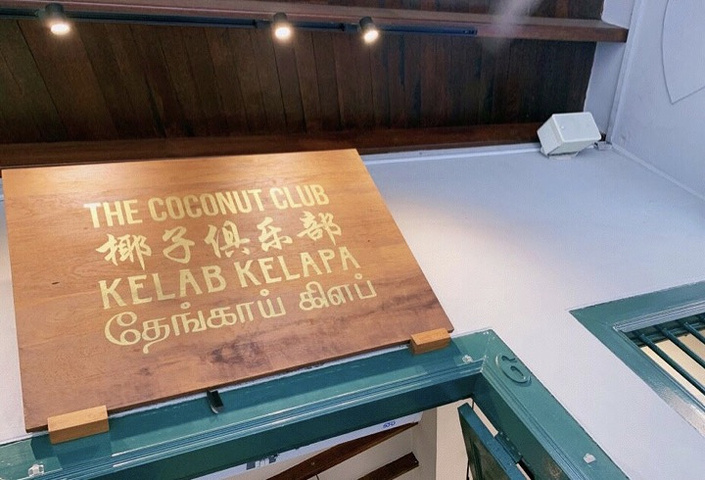 THE COCONUT CLUB
椰子俱乐部
KELAB KELAPA
தேங்காய் கிளப்
6